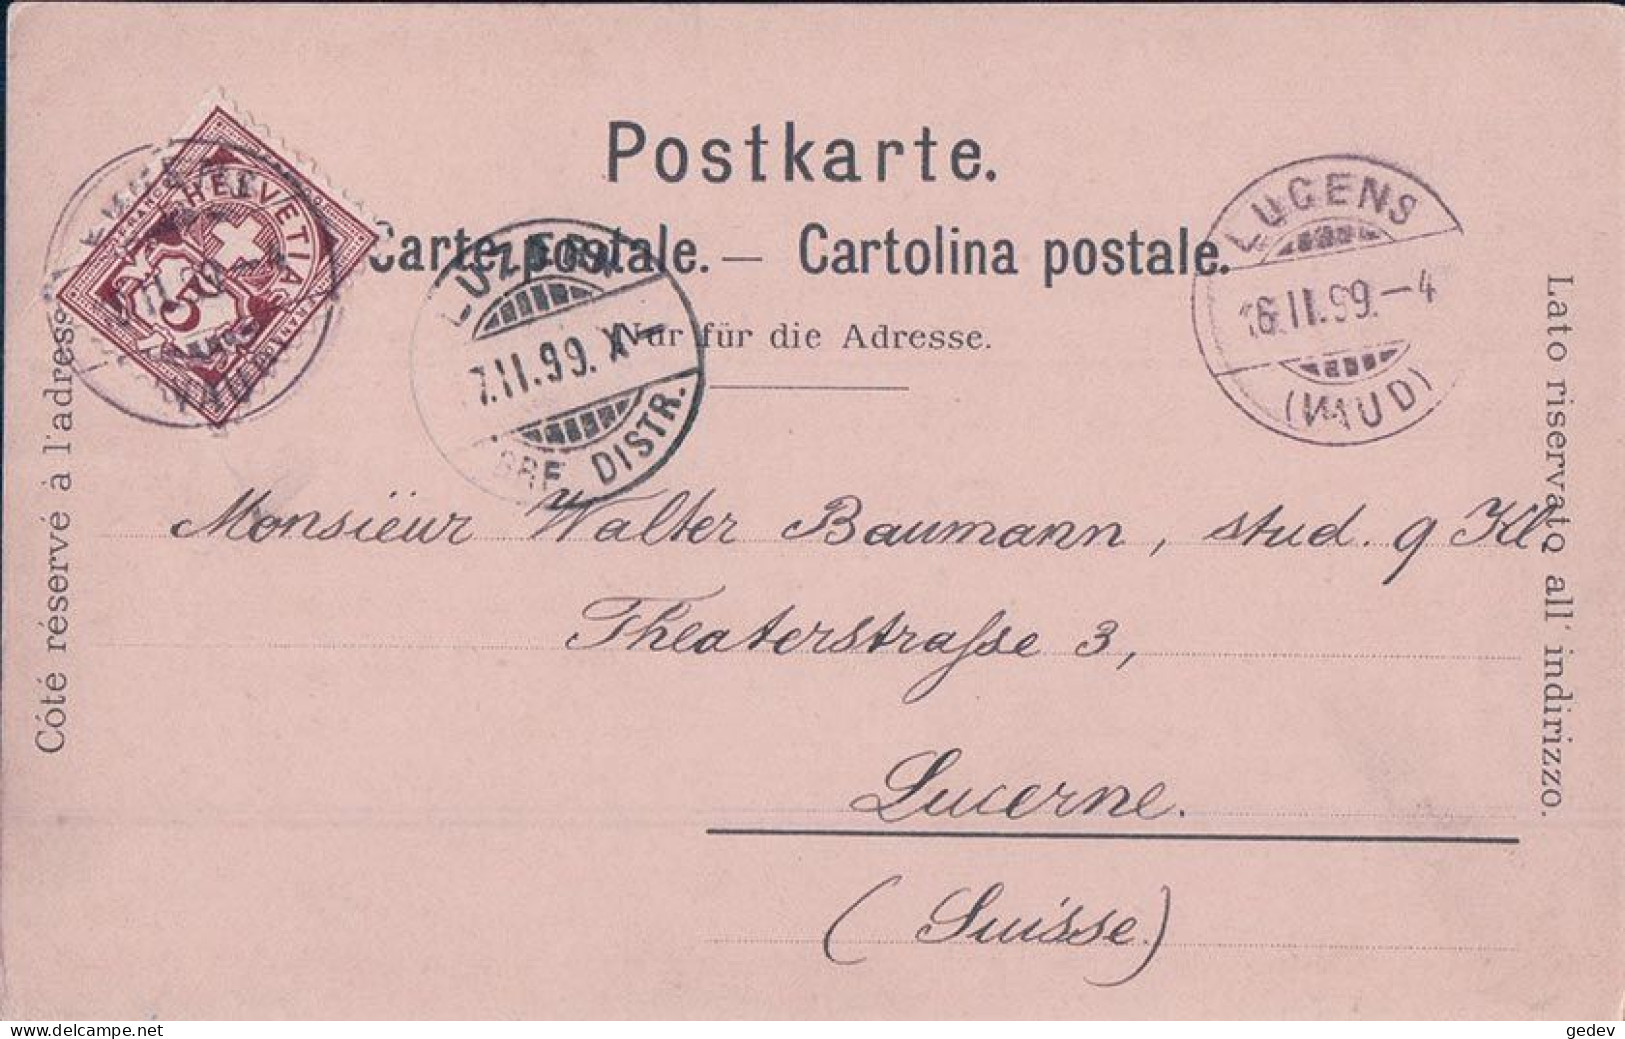 Postkarte.
Carte postale. — Cartolina postale.
Nur für die Adresse.
Côté réservé à l'adresse
Lato riservato all' indirizzo.
HELVETIA
FRANCO
5
LUZERN
7.II.99.XI
BRF. DISTR.
LUCENS
16.II.99.–4
(VAUD)
Monsieur Walter Baumann, stud. g Kl.
Theaterstrasse 3,
Lucerne.
(Suisse)
www.delcampe.net
gedev